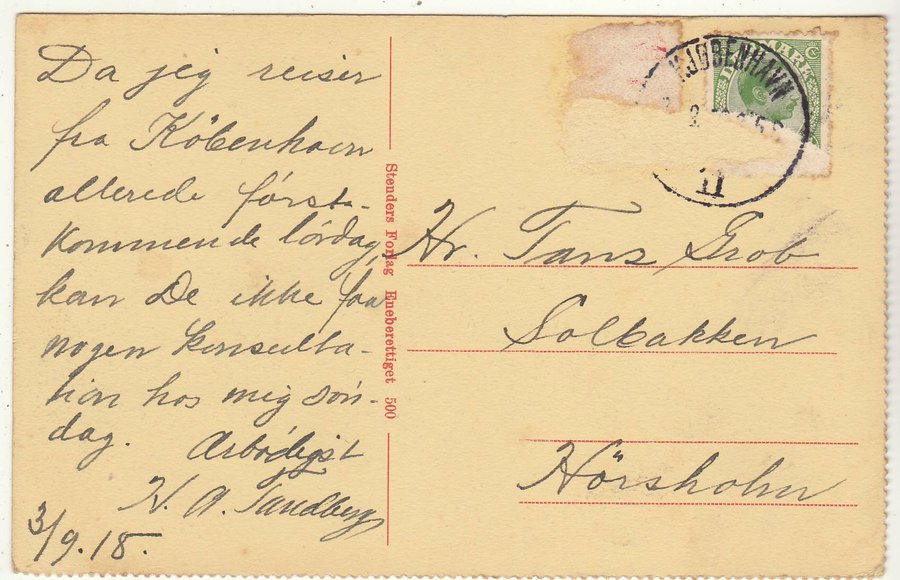 Da jeg reiser
fra Köbenhavn
allerede först-
kommende lördag,
kan De ikke faa
nogen konsulta-
tion hos mig sön-
dag.
Arbödigst
H. A. Sandberg
3/9.18.
Stenders Forlag Eneberettiget 500
KJØBENHAVN
11
DANMARK
Hr. Tans Grob
Solbakken
Hörsholm